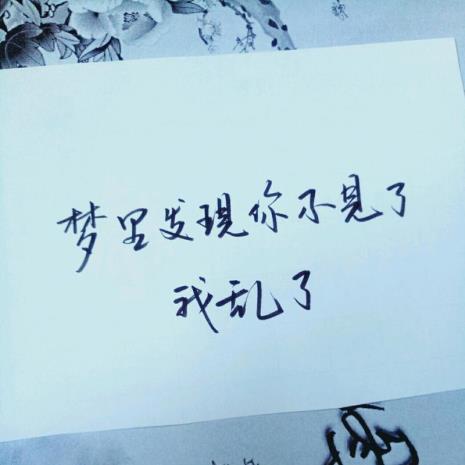 梦里发现你不见了
我乱了